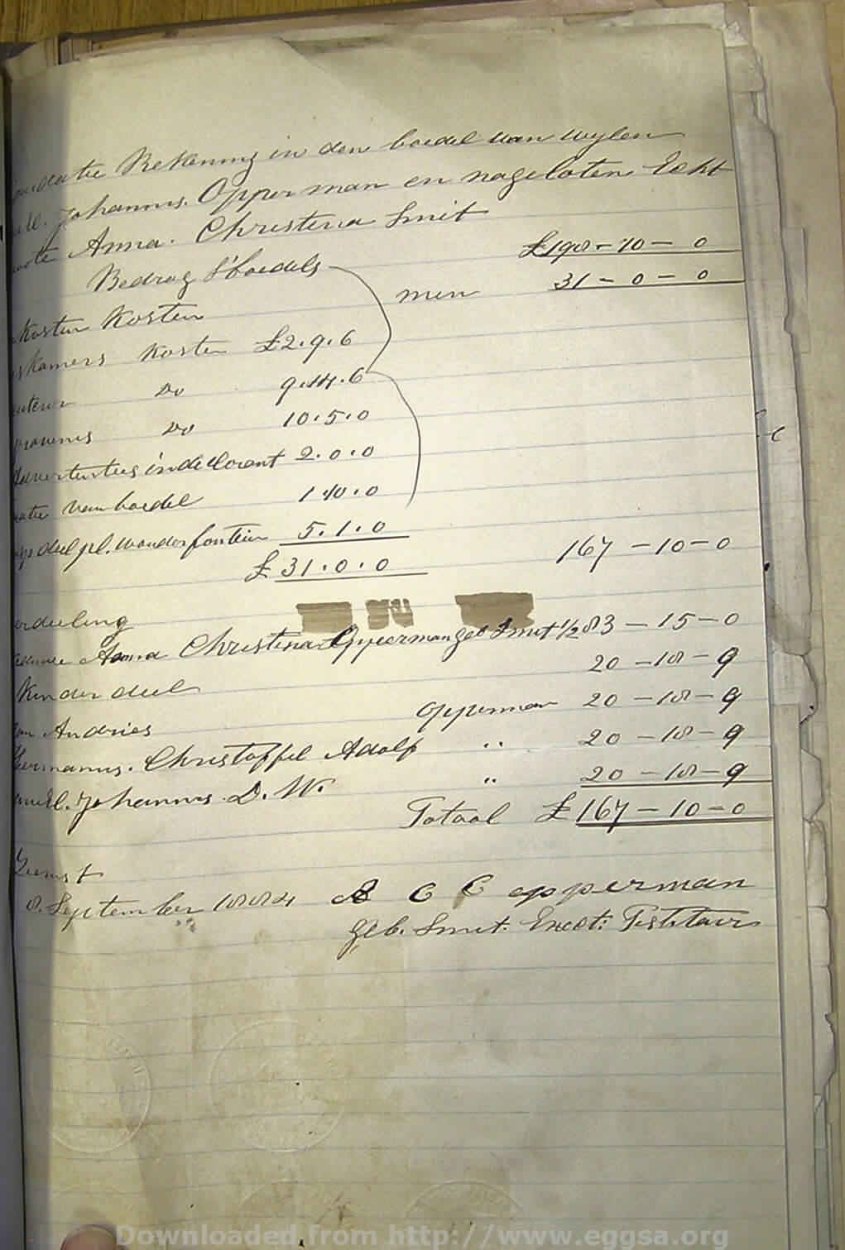 Rekening in den boedel van wylen
Johannes. Opperman en nagelaten Echt
Anna. Christina Smit
Bedrag S'boedels £198-10-0
men 31-0-0
Kosten Kosten
Kosten £2.9.6
Do 9.14.6
Do 10.5.0
2.0.0
van boedel 1.10.0
deel pl. wonderfontein 5.1.0
£31.0.0 167-10-0
Anna Christina Opperman geb Smit 1/2 83-15-0
Kinder deel 20-18-9
Andries Opperman 20-18-9
Hermanus. Christoffel Adolf " 20-18-9
Johannes. D. W. " 20-18-9
Totaal £167-10-0
Zeerust
8. September 1884 A C C opperman
geb. Smit. Exect: Testtair
Downloaded from http://www.eggsa.org